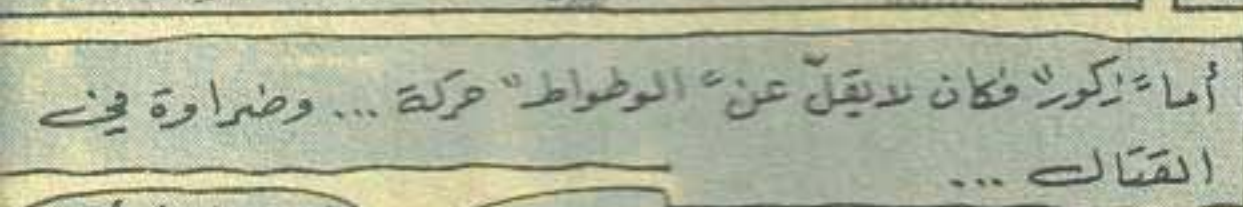 أما "زكور" فكان لا يقلّ عن "الوطواط" حركة ... وضراوة في
القتال ...